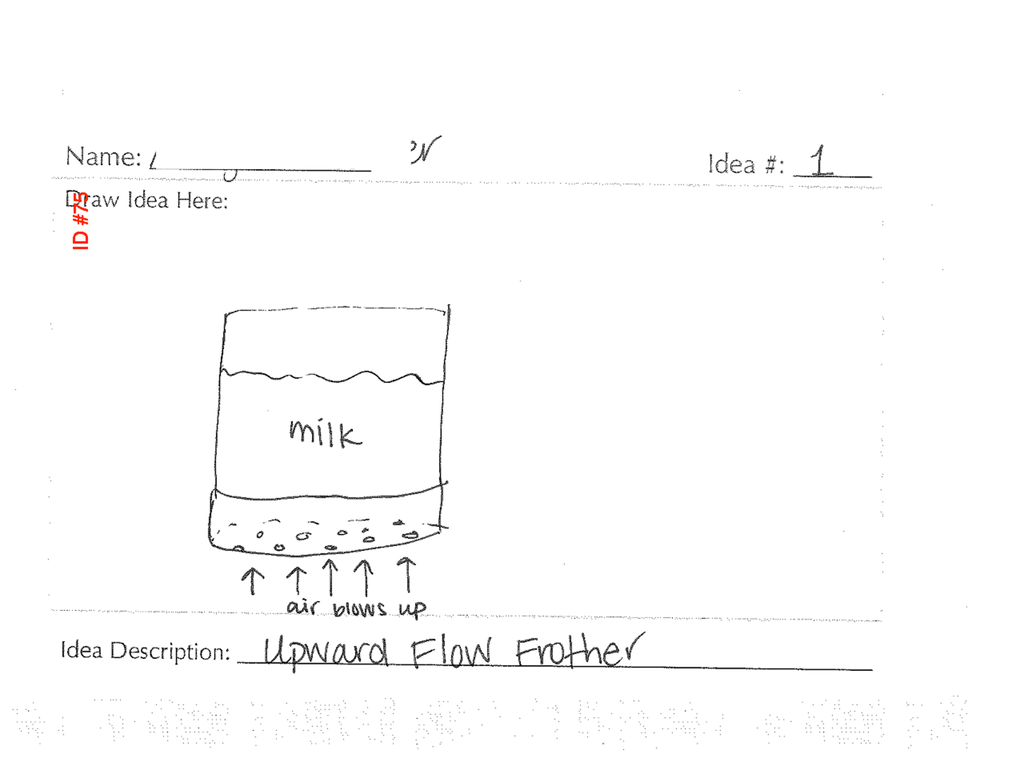 Name:
Idea #: 1
Draw Idea Here:
ID #75
milk
air blows up
Idea Description: Upward Flow Frother